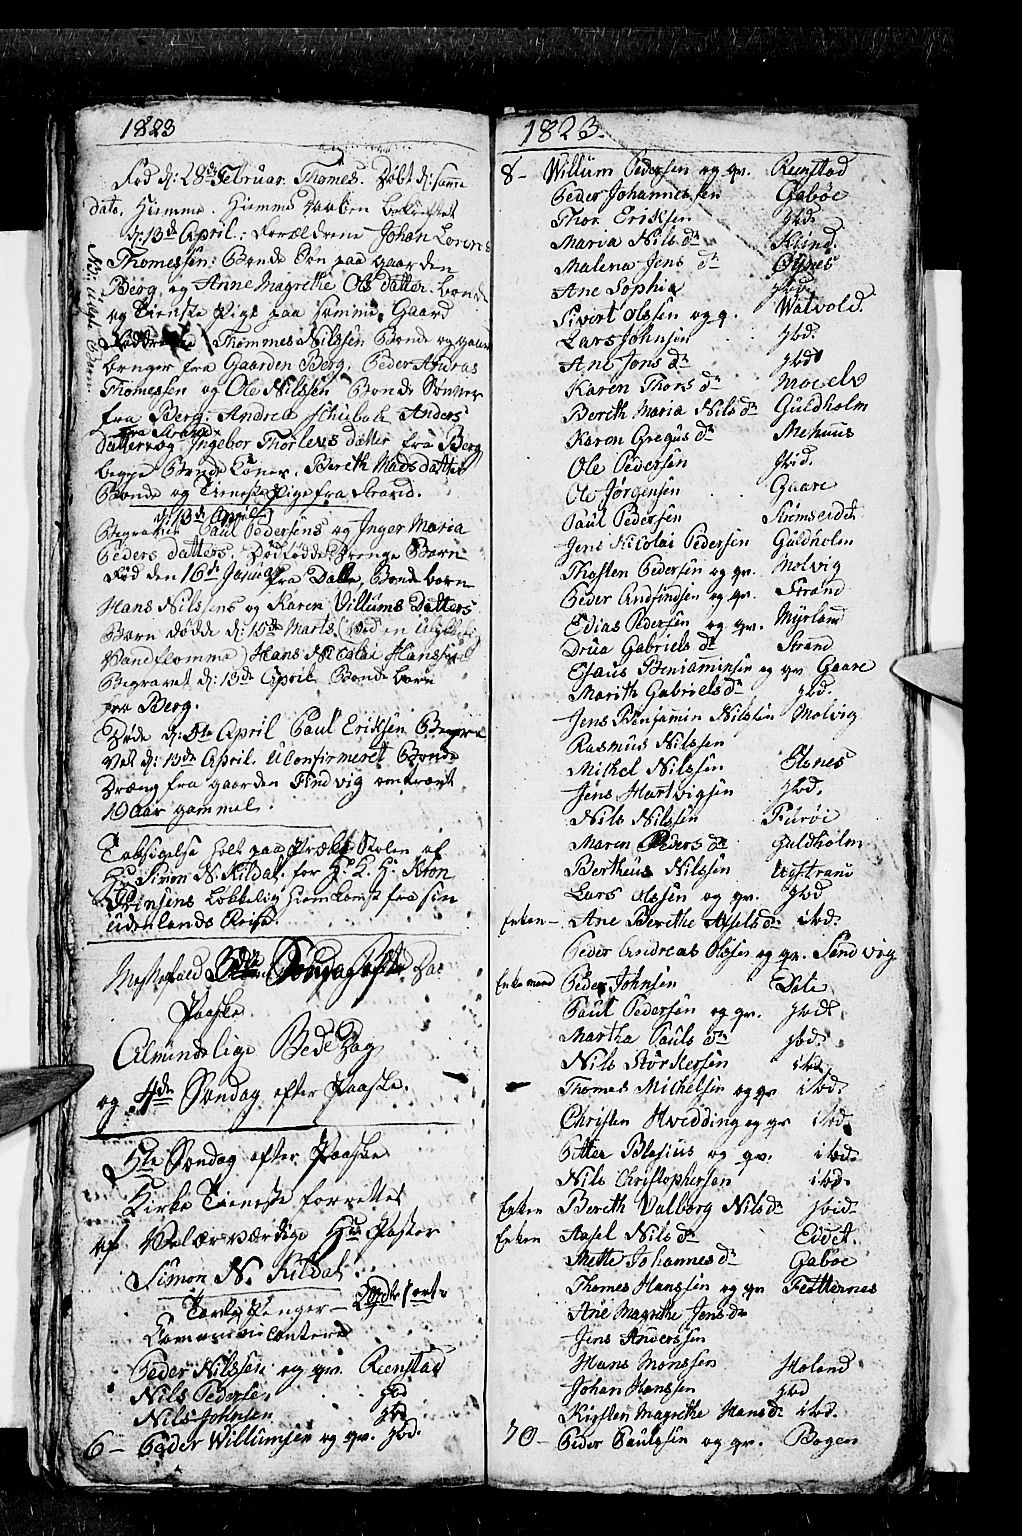 1823
Fød d: 28de Februar. Thomes. Døbt d: samme
dato. Hiemme. Hiemme Daaben bekræftet
d: 13de April: Forældrene Johan Lorens
Thomessen: Bonde Søn paa gaarden
Berg og Anne Magrethe Ols datter. bonde
og Tieneste Pige paa samme Gaard
Thommes Nilssen Bonde og gaard
bruger fra Gaarden Berg. Peder Andras
Thomessen og Ole Nilssen Bonde Sønner
fra Berg. Andrea Anders
fra Strand
datter og Ingebor Thorlevs datter fra Berg
begge Bonde Toner. Bereth Mads datter
Bonde og Tieneste Pige fra Strand.
d: 13de April
Begravet Paul Pedersens og Inger Maria
Peders datters. Dødfødde Drenge Barn
Fød den 16de Januar fra Dalle, Bonde barn
Hans Nilssens og Karen Villums Datters
Barn døde d: 15de Marts (ved en
Vandkomme) Hans Nicolai Hanssen
Begravet d: 13de April. Bonde barn
fra Berg.
Døde d: 5te April Paul Eriksen Begra
vet d: 13de April. Uconfirmeret Bonde
Dræng fra gaarden Findvig omtrent
19 Aar gammel.
Taksigelse holt paa Prækestolen af
Hr. Simon N. Kildal. for H. K. H. Kron
Prinsens Lykkelig Hiemkomst fra sin
udenlands Reise.
Messefald 3die Søndag efter
Paaske
Almindelige Bede Dag
og 4de Søndag efter Paaske.
5te Søndag efter Paaske
Kirke Tieneste forrettes
af Velærværdige Hr. Pastor
Simon N. Kildal
Tavle Penger
Communicantere
Peder Nilssen og qv. Rienstad
Nils Pederse. ibd
Nils Johnsen ibd
6 – Peder Willumsen og qv. ibd.
1823.
8 – Willum Pedersen og qv. Rienstad
Peder Johannessen Gabøe
Thor Eriksen ibd.
Maria Nils dr
Malena Jens dr Øynes
Ane Sophia ibd.
Sivert Olssen og q. Watvold.
Lars Johnsen ibd.
Ane Jons dr ibd
Karen Thors dr
Bereth Maria Nils dr Guldholm
Karen Gregus dr Mehuus
Ole Pedersen ibid.
Ole Jørgensen Gaare
Paul Pedersen Strømseidet
Jens Nicolai Pedersen Guldholm
Thosten Pedersen og qv. Molvig
Peder Andfindsen og qv. Strand
Edias Pedersen og qv. Myrland
Drua Gabriels dr Strand
Esaus Beniaminsen og qv Gaare
Marith Gabriels dr ibd.
Jens Benjamin Nilssen Molvig
Rasmus Nilssen
Mikkel Nilssen Elsnes
Jens Hartvigsen ibd.
Nils Nilssen Furøe
Maren Peders dr Guldholm
Bertheus Nilssen
Lars Olssen og qv. ibd
Enken – Ane Berethe Axels dr ibd.
Peder Andreas Olssen og qv. Sandvig
Enkemand Peder Johnsen Eide
Paul Pedersen og qv. ibid
Martha Pauls dr ibd.
Nils Størkersen ibd.
Thomes Mickelsen og qv ibd.
Christen Hvedding og qv ibd.
Petter Blasius og qv. ibd.
Nils Christophersen ibd.
Enken Bereth Valborg Nils dr ibid.
Enken Axsel Nils dr Eidet.
Mette Johannes dr Gabøe
Thomes Hanssen og qv
Ane Magrethe Jens dr
Jens Anderssen
Hans Monssen Holand
Johan Hanssen ibd
Kirsten Magrethe Hans dr ibd.
70 – Peder Paulsen og qv. Bogen